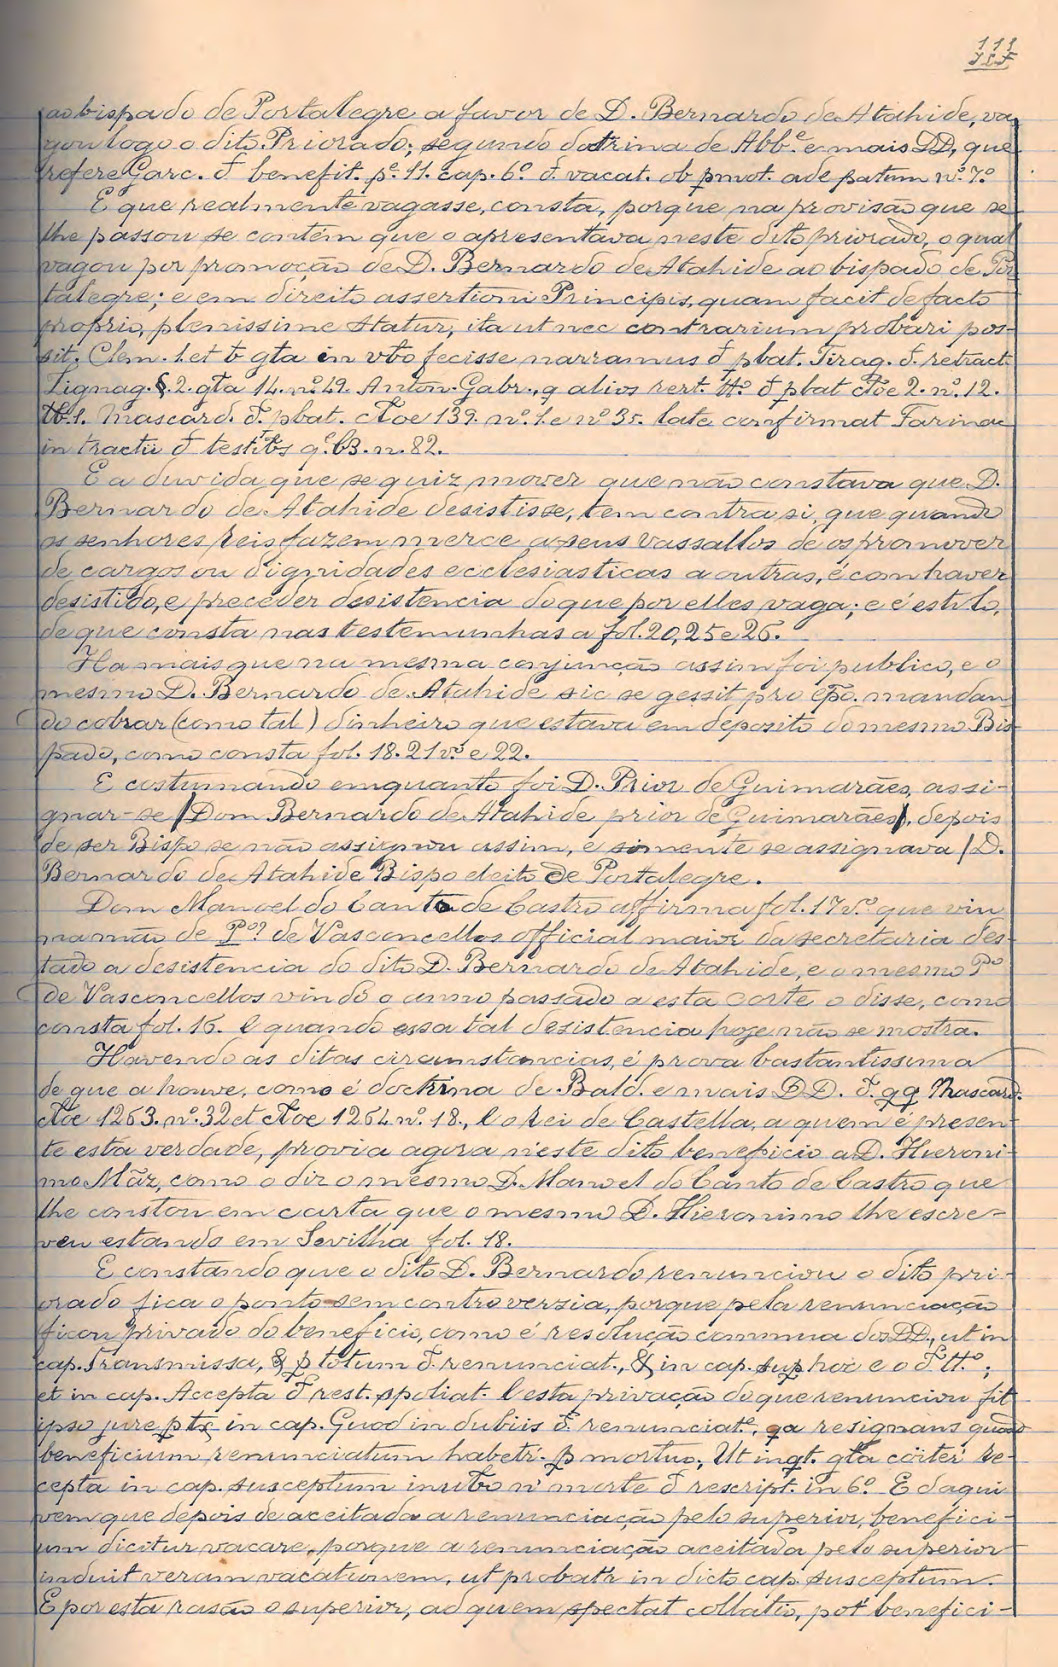 111
ao bispado de Portalegre a favor de D. Bernardo de Atahide, va-
gou logo o dito Priorado; segundo dotrina de Abb.e e mais DD, que
refere Garc. de benefit. p.e 11. cap. 6.o de vacat. ob pmot. ade patum n.o 7.o
E que realmente vagasse, consta, porque na provisão que se
lhe passou se contém que o apresentava neste dito priorado, o qual
vagou por promoção de D. Bernardo de Atahide ao bispado de Por
talegre; e em direito assertioni Principis, quam facit de facto
proprio, plenissime statur, ita ut nec contrarium probari pos-
sit. Clem. 1. et b gta in vbo fecisse narramus de pbat. Tiraq. de retract.
Lignag. §. 2. gta 14. n.o 49. Anton. Gabr., q alios rert. tt.o de pbat cloe 2. n.o 12.
Mascard. de pbat. cloe 139. n.o 1. e n.o 35. late confirmat Farinac
in tractu de testibs q.e 63. n. 82.
E a duvida que se quiz mover que não constava que D.
Bernardo de Atahide desistisse, tem contra si, que quando
os senhores reis fazem merce a seus vassallos de os promover
de cargos ou dignidades ecclesiasticas a outras, é com haver
desistido, e preceder desistencia do que por elles vaga; e é estilo,
de que consta nas testemunhas a fol. 20, 25 e 26.
Ha mais que na mesma conjunção assim foi publico, e o
mesmo D. Bernardo de Atahide sic se gessit pro epo. mandan
do cobrar (como tal) dinheiro que estava em deposito do mesmo Bis-
pado, como consta fol. 18. 21 v.o e 22.
E costumando emquanto foi D. Prior de Guimarães, assi-
gnar-se /Dom Bernardo de Atahide prior de Guimarães/, depois
de ser Bispo se não assignou assim, e somente se assignava /D.
Bernardo de Atahide Bispo eleito de Portalegre.
Dom Manoel do Canto de Castro affirma fol. 17 v.o que viu
na mão de P.o de Vasconcellos official maior da secretaria des-
tado a desistencia do dito D. Bernardo de Atahide, e o mesmo P.o
de Vasconcellos vindo o anno passado a esta corte o disse, como
consta fol. 16. E quando essa tal desistencia hoje não se mostra.
Havendo as ditas circumstancias, é prova bastantissima
de que a houve, como é doctrina de Bald. e mais DD. de qq Mascard.
cloe 1263. n.o 32 et cloe 1264 n.o 18., E o rei de Castella, a quem é presen-
te esta verdade, provia agora n'este dito beneficio a D. Hieroni-
mo Mãz, como o diz o mesmo D. Manoel do Canto de Castro que
lhe constou em carta que o mesmo D. Hieronimo lhe escre-
veu estando em Sevilha fol. 18.
E constando que o dito D. Bernardo renunciou o dito pri-
orado fica o ponto sem controversia, porque pela renunciação
ficou privado do beneficio, como é resolução commua dos DD., ut in
cap. Transmissa, & p totum de renunciat., & in cap. sup hoc e o de tt.o;
et in cap. Accepta de rest. spoliat. E esta privação do que renunciou fit
ipso jure p tx in cap. Quod in dubiis de renunciat.e, qa resignans quoad
beneficium renunciatum habetr. p mortuo, Ut in qt. gta cõiter re-
cepta in cap. susceptum in vbo n' morte de rescript. in 6.o E daqui
vem que depois de aceitada a renunciação pelo superior, benefici-
um dicitur vacare, porque a renunciação aceitada pelo superior
induit veram vacationem, ut probatr in dicto cap. susceptum.
E por esta rasão o superior, ad quem spectat collatio, pot' benefici-